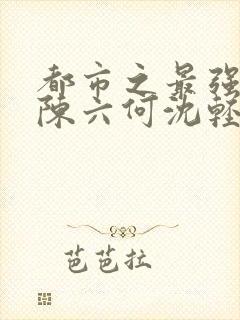 都市之最强
陈六何沈轻
芭芭拉